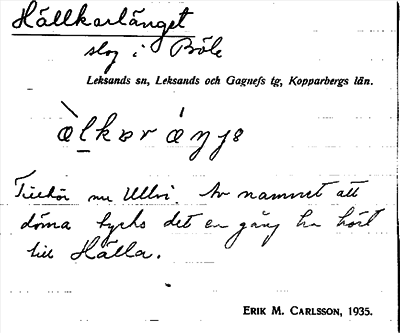 Hällkarlänget
slog i Böle
Leksands sn, Leksands och Gagnefs tg, Kopparbergs län.
Tillhör nu Ullvi. Av namnet att
döma tycks det en gång ha hört
till Hälla.
ERIK M. CARLSSON, 1935.